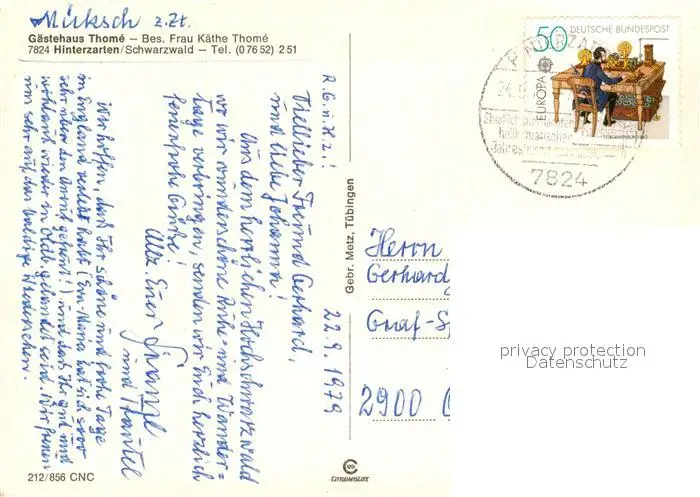 Mürksch z.Zt.
Gästehaus Thomé – Bes. Frau Käthe Thomé
7824 Hinterzarten/Schwarzwald – Tel. (0 76 52) 2 51
R.G.ü.H.z.!
22.9.1979
Viellieber Freund Gerhard,
und liebe Johanna!
Aus dem herrlichen Hochschwarzwald
wo wir wunderschöne Ruhe- und Wander=
tage verbringen, senden wir Euch herzlich
ferienfrohe Grüße!
Allz. Euer
und
Wir hoffen, daß Ihr schöne und frohe Tage
in England verlebt habt (Eva-Maria hat sich
sehr über den gefreut!) und daß Ihr gut und
wohlauf wieder in Oldb. gelandet seid. Wir freuen
uns sehr auf das baldige Wiedersehen.
212/856 CNC
Gebr. Metz, Tübingen
CHROMOLUX
50 DEUTSCHE BUNDESPOST
EUROPA
7824
Herrn
Gerhard
Graf-S
2900
privacy protection
Datenschutz